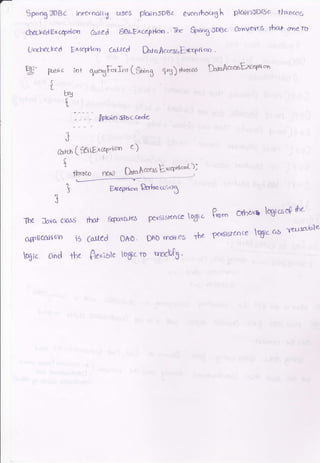 Spring JDBC internally uses plainJDBC eventhough plainJDBC throws
checkedException called SQLException. The Spring JDBC converts that one to
Unchecked Exception called DataAccessException.
Eg:- public int queryForInt (String qry) throws DataAccessException
{
try
{
---- //plain JDBC code
}
catch (SQLException e)
{
throw new DataAccessException();
}
Exception Rethrowing
}
The Java class that separates persistence logic from other logics of the
application is called DAO. DAO makes the persistence logic as reusable
logic and the flexible logic to modify.